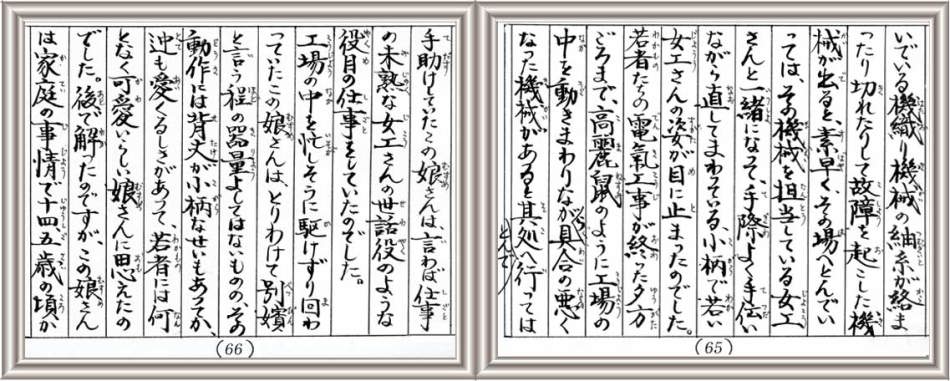 いでいる機織り機械の紬糸が絡ま
ったり切れたりして故障を起こした機
械が出ると、素早く、その場へとんでい
っては、その機械を担当している女工
さんと一緒になって、手際よく手伝い
ながら直してまわっている、小柄で若い
女工さんの姿が目に止まったのでした。
若者たちの電氣工事が終った夕方
ごろまで、高麗鼠のように工場の
中を動きまわりながら具合の悪く
なった機械があると其処へ行っては
とんで
(65)
手助けしていたこの娘さんは、言わば仕事
の未熟な女工さんの世話役のような
役目の仕事をしていたのでした。
工場の中を忙しそうに駆けずり回わ
っていたこの娘さんは、とりわけて別嬪
と言う程の器量よしではないものの、その
動作には背丈が小柄なせいもあってか、
迚も愛くるしさがあって、若者には何
となく可愛いらしい娘さんに思えたの
でした。後で解ったのですが、この娘さん
は家庭の事情で十四五歳の頃か
(66)